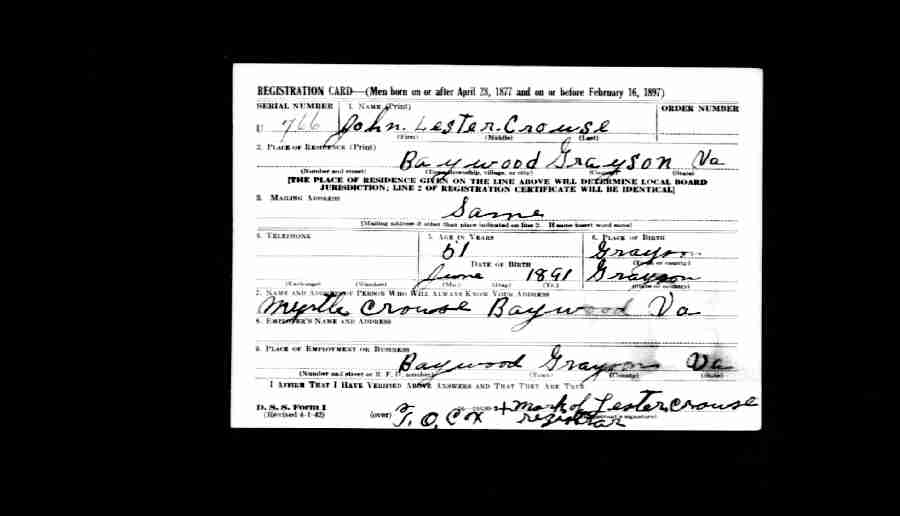 REGISTRATION CARD—(Men born on or after April 28, 1877 and on or before February 16, 1897)
SERIAL NUMBER 1. NAME (Print) ORDER NUMBER
U 766 John. Lester. Crouse
(First) (Middle) (Last)
2. PLACE OF RESIDENCE (Print)
Baywood Grayson Va
(Number and street) (Town, township, village, or city) (County) (State)
[THE PLACE OF RESIDENCE GIVEN ON THE LINE ABOVE WILL DETERMINE LOCAL BOARD
JURISDICTION; LINE 2 OF REGISTRATION CERTIFICATE WILL BE IDENTICAL]
3. MAILING ADDRESS
Same
[Mailing address if other than place indicated on line 2. If same insert word same]
4. TELEPHONE 5. AGE IN YEARS 6. PLACE OF BIRTH
51 Grayson
DATE OF BIRTH (Town or county)
June 1891 Grayson
(Exchange) (Number) (Mo.) (Day) (Yr.) (State or country)
7. NAME AND ADDRESS OF PERSON WHO WILL ALWAYS KNOW YOUR ADDRESS
Myrtle Crouse Baywood Va
8. EMPLOYER'S NAME AND ADDRESS
9. PLACE OF EMPLOYMENT OR BUSINESS
Baywood Grayson Va
(Number and street or R. F. D. number) (Town) (County) (State)
I AFFIRM THAT I HAVE VERIFIED ABOVE ANSWERS AND THAT THEY ARE TRUE
D. S. S. Form 1 mark of Lester Crouse
(Revised 4-1-42) (over) F. O. Cox registrar